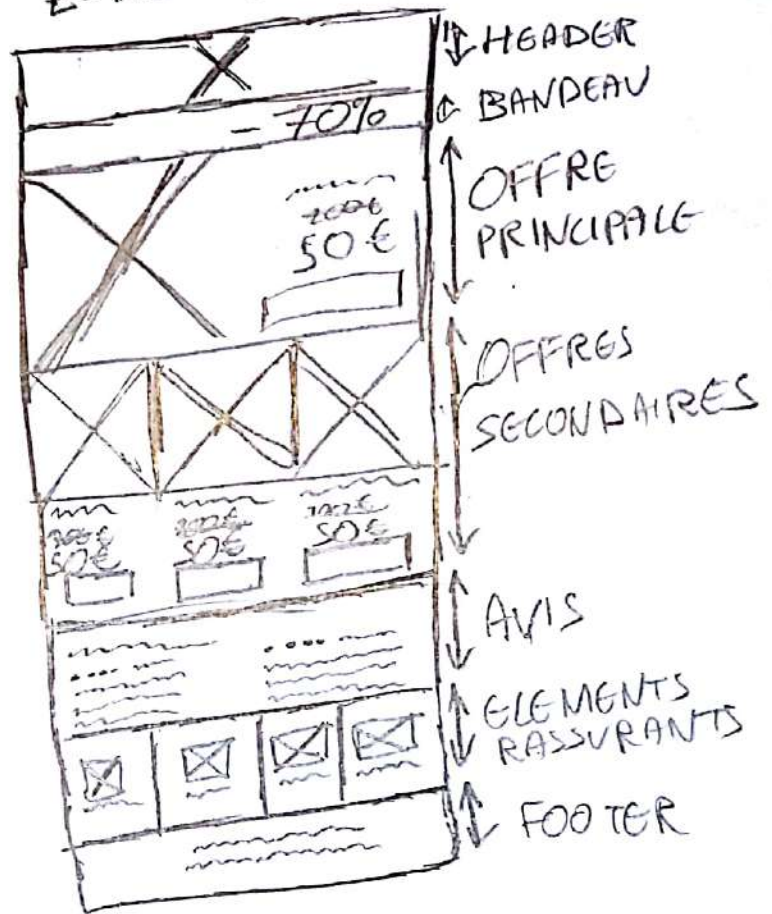 HEADER
BANDEAU
- 70%
OFFRE
PRINCIPALE
50 €
OFFRES
SECONDAIRES
50€ 50€ 50€
AVIS
ELEMENTS
RASSURANTS
FOOTER